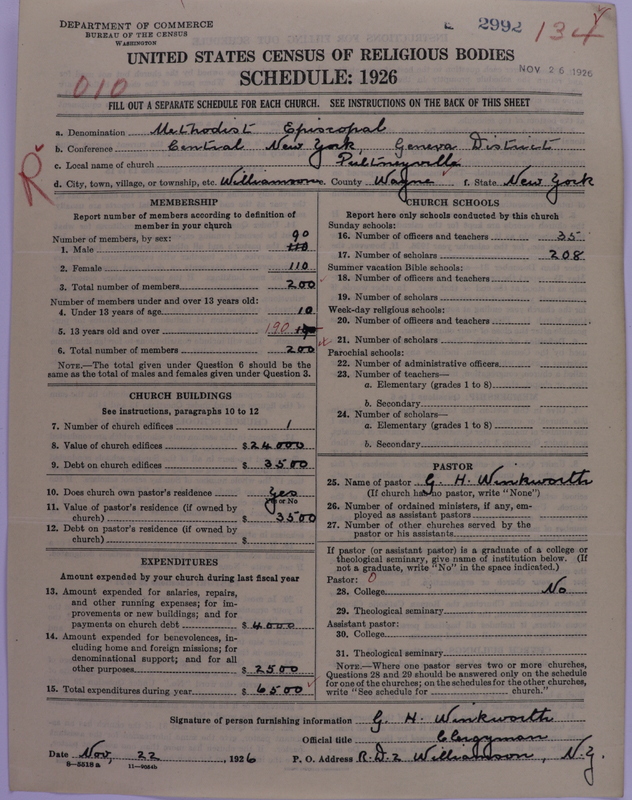 DEPARTMENT OF COMMERCE
BUREAU OF THE CENSUS
WASHINGTON
2992
134
UNITED STATES CENSUS OF RELIGIOUS BODIES
SCHEDULE: 1926
NOV 26 1926
010
FILL OUT A SEPARATE SCHEDULE FOR EACH CHURCH. SEE INSTRUCTIONS ON THE BACK OF THIS SHEET
a. Denomination Methodist Episcopal
b. Conference Central New York, Geneva District
c. Local name of church Pultneyville
d. City, town, village, or township, etc. Williamson e. County Wayne f. State New York
R
MEMBERSHIP
Report number of members according to definition of member in your church
Number of members, by sex:
1. Male 90 110
2. Female 110
3. Total number of members 200
Number of members under and over 13 years old:
4. Under 13 years of age 10
5. 13 years old and over 190
6. Total number of members 200
NOTE.—The total given under Question 6 should be the same as the total of males and females given under Question 3.
CHURCH BUILDINGS
See instructions, paragraphs 10 to 12
7. Number of church edifices 1
8. Value of church edifices $24000
9. Debt on church edifices $3500
10. Does church own pastor's residence Yes
Yes or No
11. Value of pastor's residence (if owned by church) $3500
12. Debt on pastor's residence (if owned by church) $
EXPENDITURES
Amount expended by your church during last fiscal year
13. Amount expended for salaries, repairs, and other running expenses; for improvements or new buildings; and for payments on church debt $4000
14. Amount expended for benevolences, including home and foreign missions; for denominational support; and for all other purposes $2500
15. Total expenditures during year $6500
CHURCH SCHOOLS
Report here only schools conducted by this church
Sunday schools:
16. Number of officers and teachers 35
17. Number of scholars 208
Summer vacation Bible schools:
18. Number of officers and teachers
19. Number of scholars
Week-day religious schools:
20. Number of officers and teachers
21. Number of scholars
Parochial schools:
22. Number of administrative officers
23. Number of teachers—
a. Elementary (grades 1 to 8)
b. Secondary
24. Number of scholars—
a. Elementary (grades 1 to 8)
b. Secondary
PASTOR
25. Name of pastor G. H. Winkworth
(If church has no pastor, write "None")
26. Number of ordained ministers, if any, employed as assistant pastors
27. Number of other churches served by the pastor or his assistants
If pastor (or assistant pastor) is a graduate of a college or theological seminary, give name of institution below. (If not a graduate, write "No" in the space indicated.)
Pastor: 0
28. College No
29. Theological seminary
Assistant pastor:
30. College
31. Theological seminary
NOTE.—Where one pastor serves two or more churches, Questions 28 and 29 should be answered only on the schedule for one of the churches; on the schedules for the other churches, write "See schedule for church."
Signature of person furnishing information G. H. Winkworth
Official title Clergyman
Date Nov, 22, 1926 P. O. Address R.D.2 Williamson, N.Y.
8—5518a 11—9664b